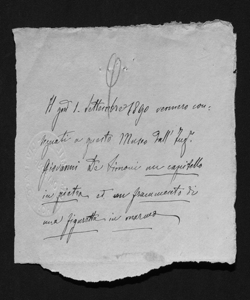 Il gno 1. Settembre 1890 vennero con-
segnati a questo Museo dall' Ing.r
Giovanni De Simone un capitello
in pietra et un frammento di
una figuretta in marmo